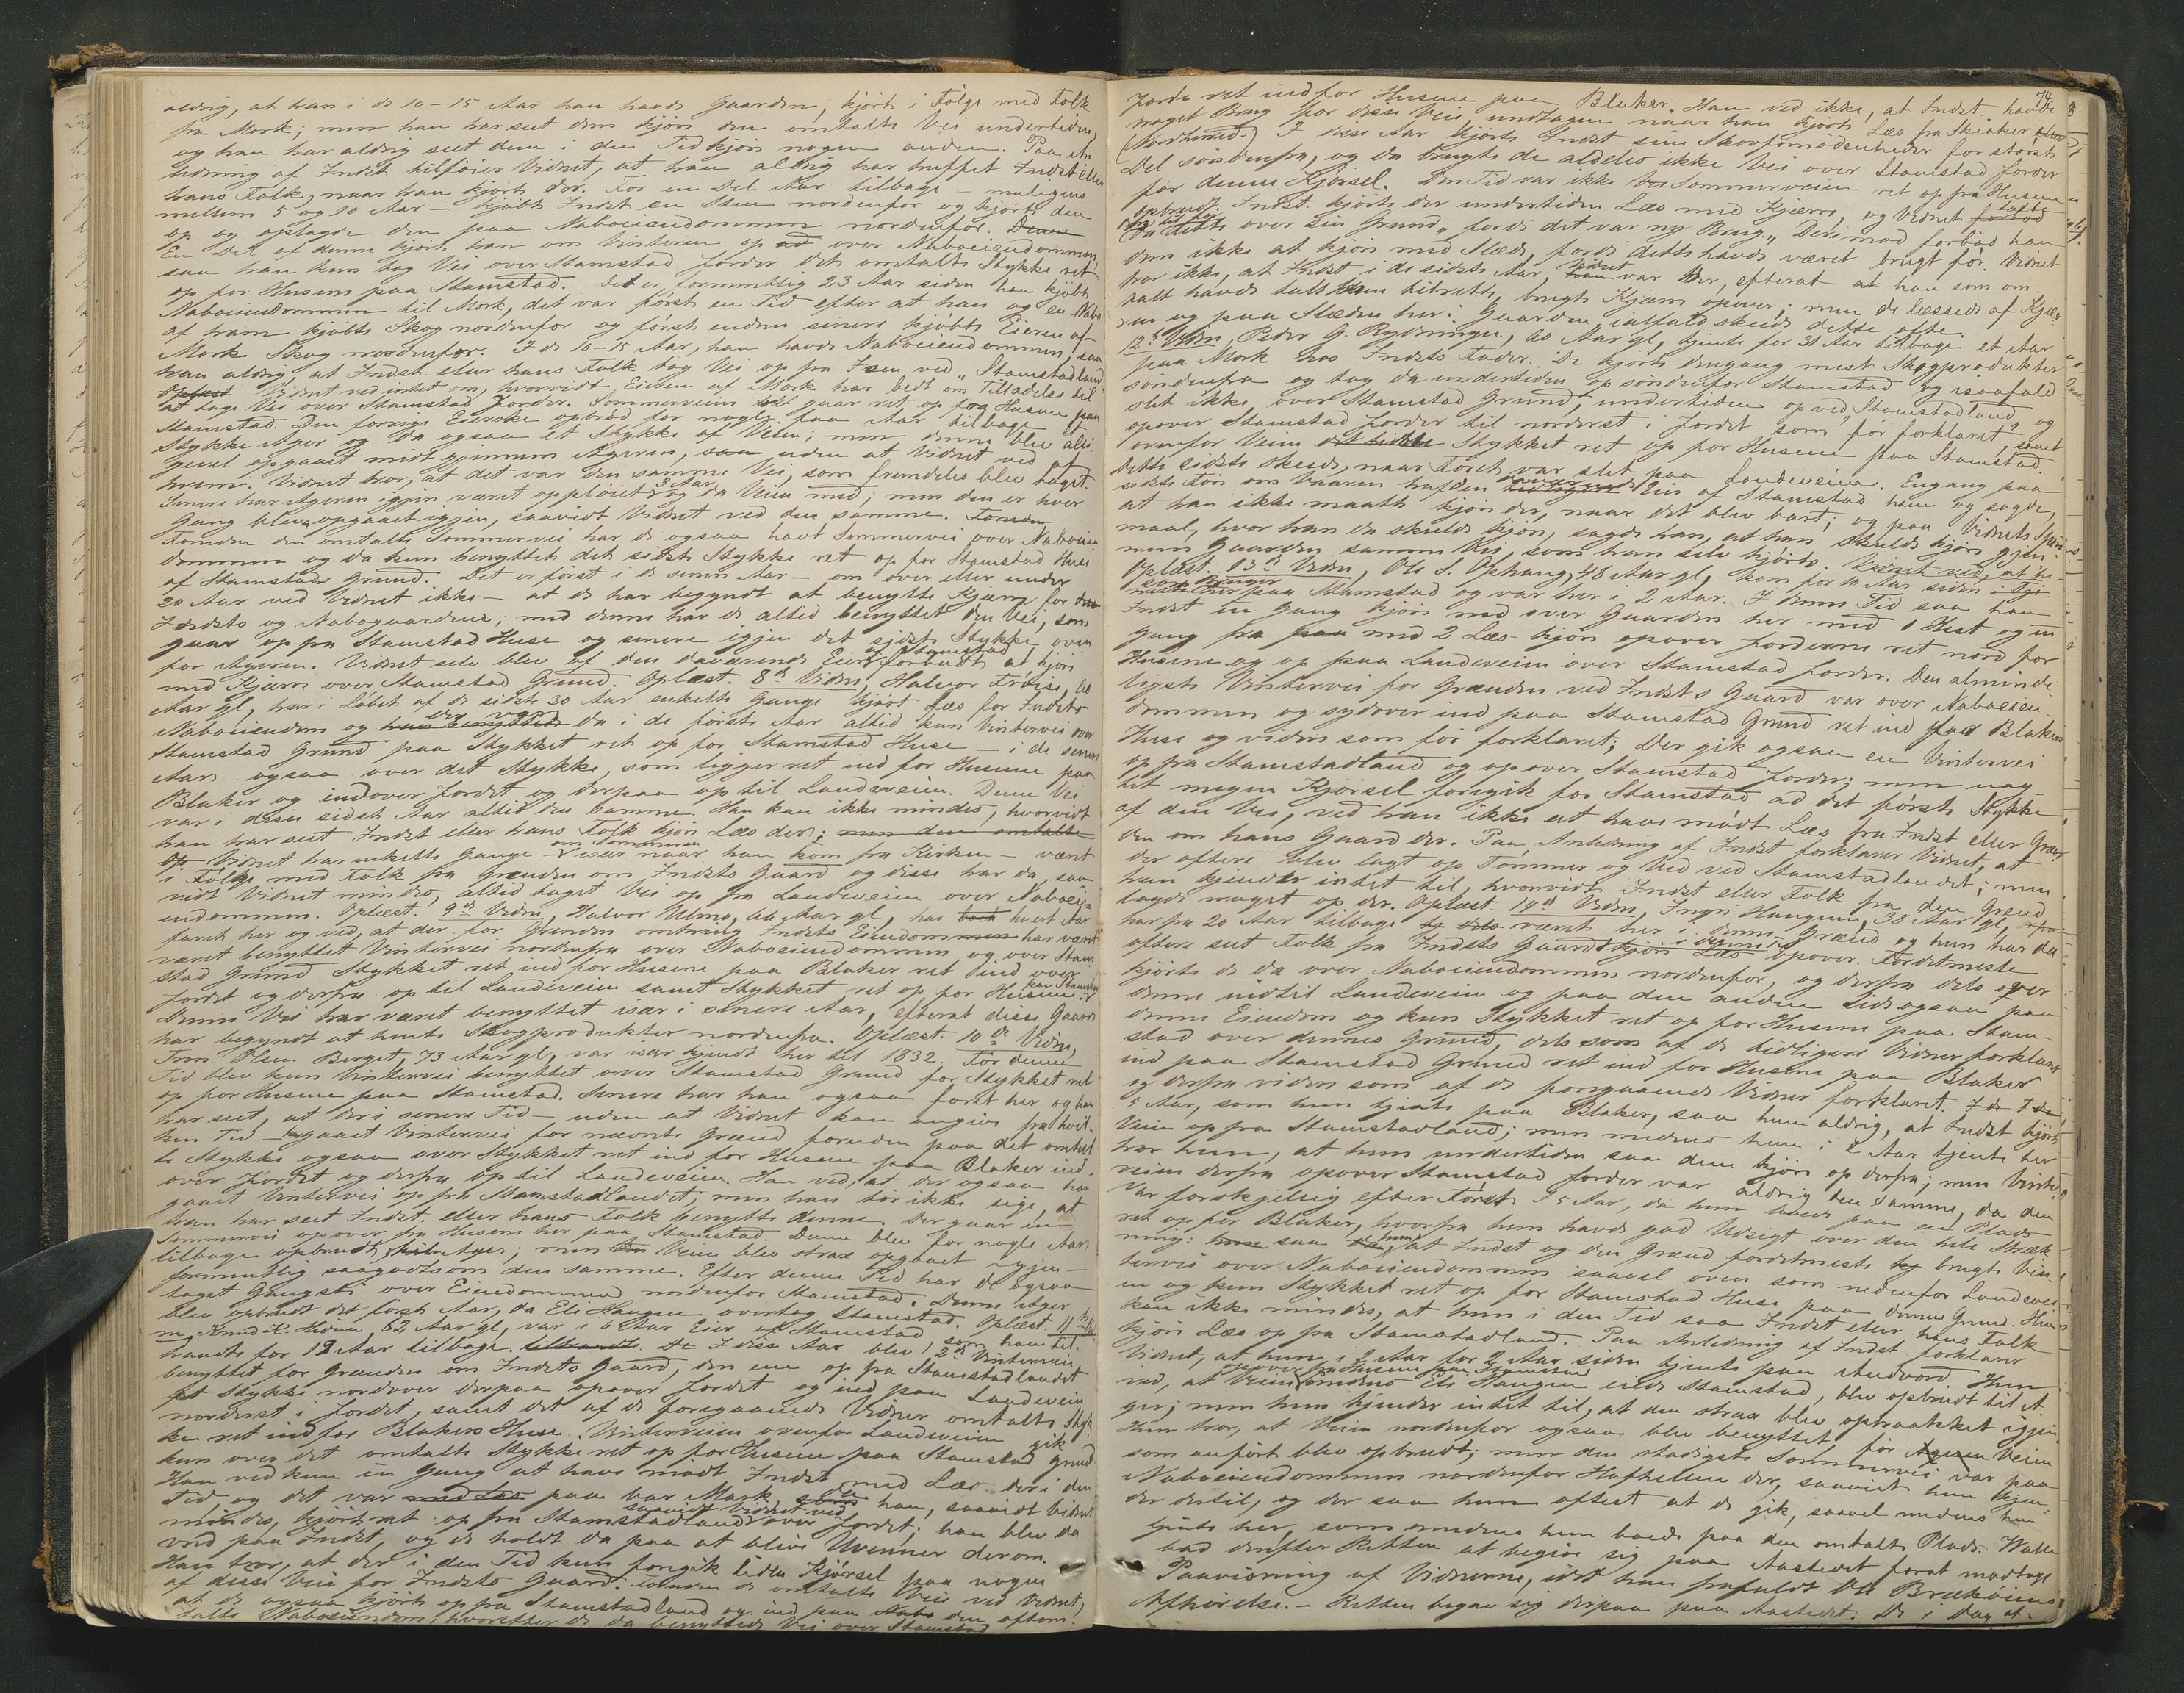 aldrig, at han i de 10-15 Aar han havde Gaarden, kjørte i Følge med Folk
fra Mork; men han har seet dem kjøre den omtalte Vei undertiden,
og han har aldrig seet dem i den Tid kjøre nogen anden. Paa An
ledning af Indst. tilføier Vidnet, at han aldrig har truffet Indst. eller
hans Folk, naar han kjørte der. For en Del Aar tilbage - muligens
mellem 5 og 10 Aar - kjøbte Indst. en Skov nordenfor og kjørte den
op og oplagde den paa Naboeiendommen nordenfor. Denne
En Del af denne kjørte han om Vinteren op ad over Naboeiendommen,
saa han kun tog Vei over Stamstad Jorder det omtalte Stykke ret
op for Husene paa Stamstad. Det er formentlig 23 Aar siden han kjøbte
Naboeiendommen til Mork, det var først en Tid efter at han og en Nabo
af ham kjøbte Skog nordenfor og først endnu senere kjøbte Eieren af
Mork Skog nordenfor. I de 10-15 Aar, han havde Naboeiendommen, saa
han aldrig, at Indst. eller hans Folk tog Vei op fra Isen ved "Stamstadland
Oplæst Vidnet ved intet om, hvorvidt Eieren af Mork har bedt om Tilladelse til
at tage Vei over Stamstad Jorder. Sommerveien gaar ret op fra Husene paa
Stamstad. Den forrige Eierske opbrød for nogle faa Aar tilbage et
Stykke Ager og da ogsaa et Stykke af Veien; men denne blev alli
gevel opgaaet midt gjennem Ageren, saa uden at Vidnet ved af
hvem. Vidnet tror, at det var den samme Vei, som fremdeles blev taget.
Senere har Ageren igjen været opploiet 3 Aar og da Veien med; men den er hver
Gang bleven opgaaet igjen, saavidt Vidnet ved den samme. Foruden
Foruden den omtalte Sommervei har de ogsaa havt Sommervei over Naboeien
dommen og da kun benyttet det sidste Stykke ret op for Stamstad Huse
af Stamstads Grund. Det er først i de senere Aar - om over eller under
20 Aar ved Vidnet ikke - at de har begyndt at benytte Kjærre for
Indsts og Nabogaardene; med denne har de altid benyttet den Vei, som
gaar op fra Stamstad Huse og senere igjen det sidste Stykke oven
for Ageren. Vidnet selv blev af den daværende Eier af Stamstad forbudt at kjøre
med Kjærre over Stamstad Grund. Oplæst. 8de Vidne, Halvor Frøise,
Aar gl, har i Løbet af de sidste 30 Aar enkelte Gange kjørt Læs for Indsts
Naboeiendom og han benyttede da i de første Aar altid kun Vintervei over
Stamstad Grund paa Stykket ret op for Stamstad Huse - i de senere
Aar ogsaa over det Stykke, som ligger ret ind for Husene paa
Blaker og indover Jordet og derpaa op til Landeveien. Denne Vei
var i disse sidste Aar altid den samme. Han kan ikke mindes, hvorvidt
han har seet Indst. eller hans Folk kjøre Læs der; men den omtalte
op Vidnet har enkelte Gange om Sommeren - især naar han kom fra Kirken - været
i Følge med Folk fra Grænden om Indsts Gaard og disse har da, saa
vidt Vidnet mindes, altid taget Vei op fra Landeveien over Naboei-
endommen. Oplæst. 9de Vidne, Halvor Ulmo, Aar gl, har hvert Aar
faret her og ved, at der for Grænden omkring Indsts Eiendommen har været
været benyttet Vintervei nordenfra over Naboeiendommen og over Stam
stad Grund Stykket ret ind for Husene paa Blaker ret ind over
Jordet og derfra op til Landeveien samt Stykket ret op for Husene paa Stamstad.
Denne Vei har været benyttet især i senere Aar, efterat disse Gaarde
har begyndt at hente Skogprodukter nordenfra. Oplæst. 10de Vidne,
Tron Olsen Berget, 73 Aar gl, var især kjendt her til 1832. Før denne
Tid blev kun Vintervei benyttet over Stamstad Grund for Stykket ret
op for Husene paa Stamstad. Senere har han ogsaa faret her og han
har seet, at der i senere Tid - uden at Vidnet kan angive fra hvil-
ken Tid - har gaaet Vintervei for nævnte Grænd foruden paa det omtal
te Stykke ogsaa over Stykket ret ind for Husene paa Blaker ind-
over Jordet og derfra op til Landeveien. Han ved, at der ogsaa har
gaaet Vintervei op fra Stamstadlandet; men han tør ikke sige, at
han har seet Indst. eller hans Folk benytte denne. Der gaar en
Sommervei opover fra Husene her paa Stamstad. Denne blev for nogle Aar
tilbage opbrudt til Ager; men Veien blev strax opgaaet igjen -
formentlig saagodtsom den samme. Efter denne Tid har de ogsaa
taget Gangsti over Eiendommen nordenfor Stamstad. Denne Ager
blev opbrudt det første Aar, da Eli Haugen overtog Stamstad. Oplæst. 11te Vid
ne, Knud K. Hidem, 62 Aar gl, var i 6 Aar Eier af Stamstad, som han til-
handte for 18 Aar tilbage. I disse Aar blev 2de Vinterveie
benyttet for Grænden om Indsts Gaard, den ene op fra Stamstadlandet
et Stykke nordover derpaa opover Jordet og ind paa Landeveien
nordenst i Jordet, samt det af de foregaaende Vidner omtalte Styk-
ke ret ind for Blakers Huse. Vinterveien ovenfor Landeveien gik
kun over det omtalte Stykke ret op for Husene paa Stamstad Grund
Han ved kun en Gang at have mødt Indst. med Læs der i den
Tid, og det var med Læs paa bar Mark, da han, saavidt Vidnet
mindes, kjørte ret op fra Stamstadlandet saavidt Vidnet ved over Jordet; han blev da
vred paa Indst, og de holdt da paa at blive Uvenner derom.
Han tror, at der i den Tid kun foregik liden Kjørsel paa nogen
af disse Veie for Indsts Gaard. Foruden de omtalte Veie ved Vidnet,
at de ogsaa kjørte op fra Stamstadland og ind paa den oftom-
talte Naboeiendom, hvorefter de da benyttede Vei over Stamstad
74
Jorde ret ind for Husene paa Blaker. Han ved ikke, at Indst. havde
noget Brug for disse Veie, undtagen naar han kjørte Læs fra Skiaker
(Nordheim) I disse Aar kjørte Indst sine Skovfornødenheder for største
Del søndenfra, og da brugte de aldeles ikke Vei over Stamstad Jorder
for denne Kjørsel. Den Tid var ikke Sommerveien ret op fra Husene
opbrudt. Indst. kjørte der undertiden Læs med Kjærre, og Vidnet forbød
dem dette over sin Grund, fordi det var ny Brug. Derimod forbød han
dem ikke at kjøre med Slæde, fordi dette havde været brugt før. Vidnet
tror ikke, at Indst. i de sidste Aar, Vidnet var her, efterat han som om-
talt havde talt ham tilrette, brugte Kjærre opover; men de læssede af Kjær-
ren og paa Slæden her i Gaarden, ialfald skede dette ofte.
12te Vidne, Peder G. Rydningen, 60 Aar gl, tjente for 30 Aar tilbage et Aar
paa Mork hos Indsts Fader. De kjørte dengang mest Skogprodukter
søndenfra og tog da undertiden op søndenfor Stamstad og isaafald
slet ikke over Stamstad Grund, undertiden op ved "Stamstadland" og
opover Stamstad Jorder til nordenst i Jordet som før forklaret, samt
ovenfor Veien Stykket ret op for Husene paa Stamstad.
Dette sidste skede, naar Føret var slet paa Landeveien. Engang paa
sidste Føre om Vaaren traf den daværende Eier af Stamstad ham og sagde,
at han ikke maatte kjøre der, naar det blev bart; og paa Vidnets Spørs-
maal, hvor han da skulde kjøre, sagde han, at han skulde kjøre gjen-
nem Gaarden samme Vei, som han selv kjørte.
Oplæst. 13de Vidne, Ole S. Ophaug, 48 Aar gl, kom for 10 Aar siden
som Bruger her paa Stamstad og var her i 2 Aar. I denne Tid saa han
Indst. en Gang kjøre ned over Gaarden her med 1 Hest og en
Gang fra med 2 Læs kjøre opover Jorderne ret nord for
Husene og op paa Landeveien over Stamstad Jorder. Den alminde-
ligste Vintervei for Grænden ved Indsts Gaard var over Naboeien-
dommen og sydover ind paa Stamstad Grund ret ind for Blakers
Huse og videre som før forklaret; Der gik ogsaa en Vintervei
op fra Stamstadland og opover Stamstad Jorder; men uag-
tet megen Kjørsel foregik for Stamstad ad det første Stykke
af den Vei, ved han ikke at have mødt Læs fra Indst eller Græn-
den om hans Gaard der. Paa Anledning af Indst forklarer Vidnet, at
der oftere blev lagt op Tømmer og Ved ved Stamstadlandet; men
han kjender intet til, hvorvidt Indst. eller Folk fra den Grænd
lagde noget op der. Oplæst. 14de Vidne, Ingri Haugum, 38 Aar gl,
har fra 20 Aar tilbage været her i denne Grænd og hun har da
oftere seet Folk fra Indsts Gaard kjøre Læs opover. Fordetmeste
kjørte de da over Naboeiendommen nordenfor, og derfra dels over
denne indtil Landeveien og paa den anden Side ogsaa paa
denne Eiendom og kun Stykket ret op for Husene paa Stam-
stad over dennes Grund, dels som af de tidligere Vidner forklaret
ind paa Stamstad Grund ret ind for Husene paa Blaker
og derfra videre som af de foregaaende Vidner forklaret. I de
5 Aar, som hun tjente paa Blaker, saa hun aldrig, at Indst kjørte
Veien op fra Stamstadland; men medens hun i 2 Aar tjente her
tror hun, at hun undertiden saa dem kjøre op derfra; men Vinter-
veien derfra opover Stamstad Jorder var aldrig den samme, da den
var forskjellig efter Føret. I 5 Aar, da hun boede paa en Plads
ret op for Blaker, hvorfra hun havde god Udsigt over den hele Stræk-
ning: saa hun, at Indst og den Grænd fordetmeste brugte Vin-
tervei over Naboeiendommen saavel oven som nedenfor Landevei-
en og kun Stykket ret op for Stamstad Huse paa dennes Grund. Hun
kan ikke mindes, at hun i den Tid saa Indst eller hans Folk
kjøre Læs op fra Stamstadland. Paa Anledning af Indst forklarer
Vidnet, at hun i 2 Aar for 2 Aar siden tjente paa Andvord. Hun
ved, at Veien opover fra Husene paa Stamstad medens Eli Haugen eiede Stamstad, blev opbrudt til A-
ger; men hun kjender intet til, at den strax blev optraakket igjen.
Hun tror, at Veien nordenfor ogsaa blev benyttet, før Veien
som anført blev opbrudt; men den stadigste Sommervei var paa
Naboeiendommen nordenfor Hofthellen der, saavidt hun kjen-
der dertil, og der saa hun oftest at de gik, saavel medens hun
tjente her, som medens hun boede paa den omtalte Plads.
bad derefter Retten at begive sig paa Aastedet forat modtage
Paavisning af Vidnerne, idet han frafaldt Ole Brækvens
Afhørelse. - Retten begav sig derpaa paa Aastedet. De i Dag af-